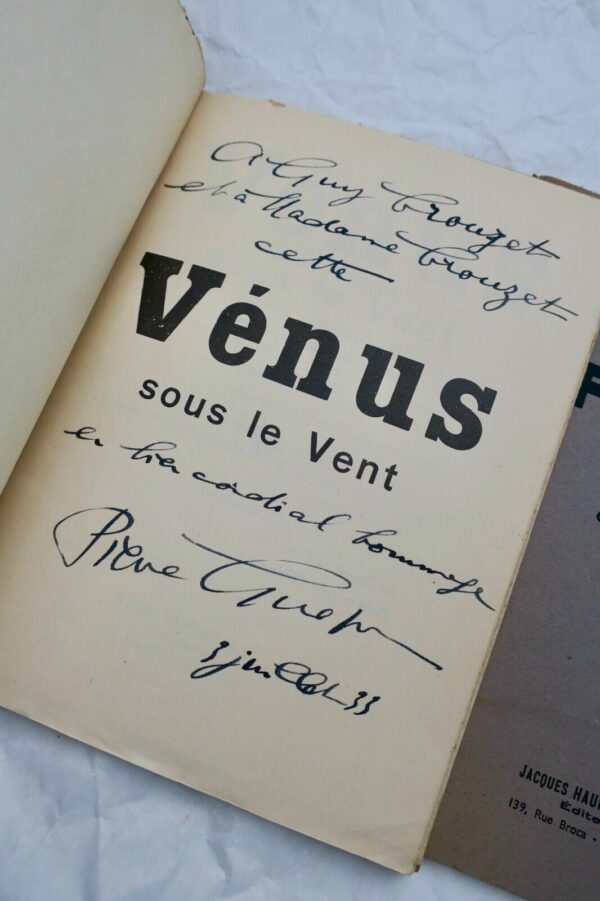 A Guy Crouzet
et à Madame Crouzet
cette
Vénus
sous le Vent
en bien cordial hommage
Pierre
3 juillet 33
F
JACQUES HAU
Édite
139, Rue Broca -